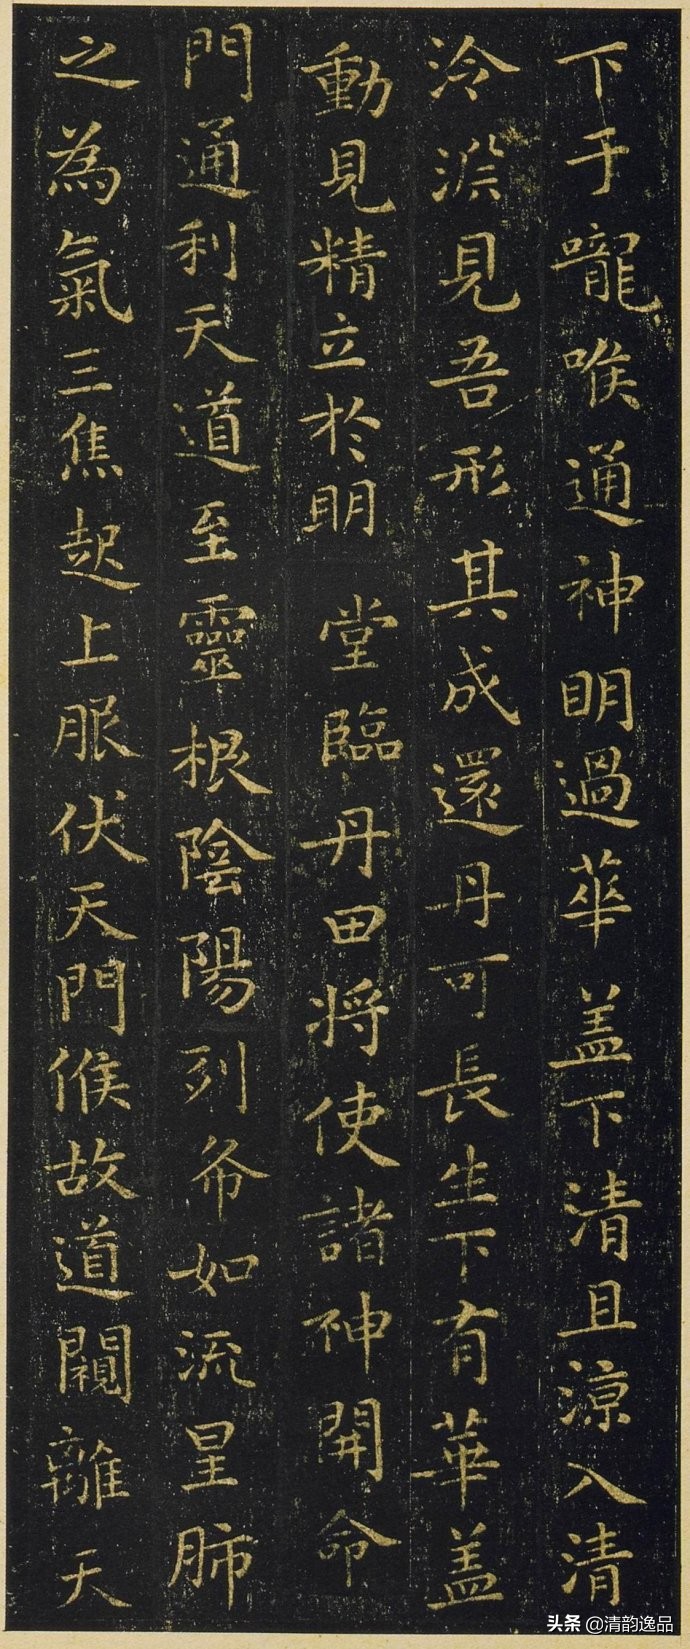 下于嚨喉通神明過華盖下清且涼入清
泠淵見吾形其成還丹可長生下有華盖
動見精立於明堂臨丹田将使諸神開命
門通利天道至靈根陰陽列布如流星肺
之為氣三焦起上服伏天門候故道闚離天
头条 @清韵逸品